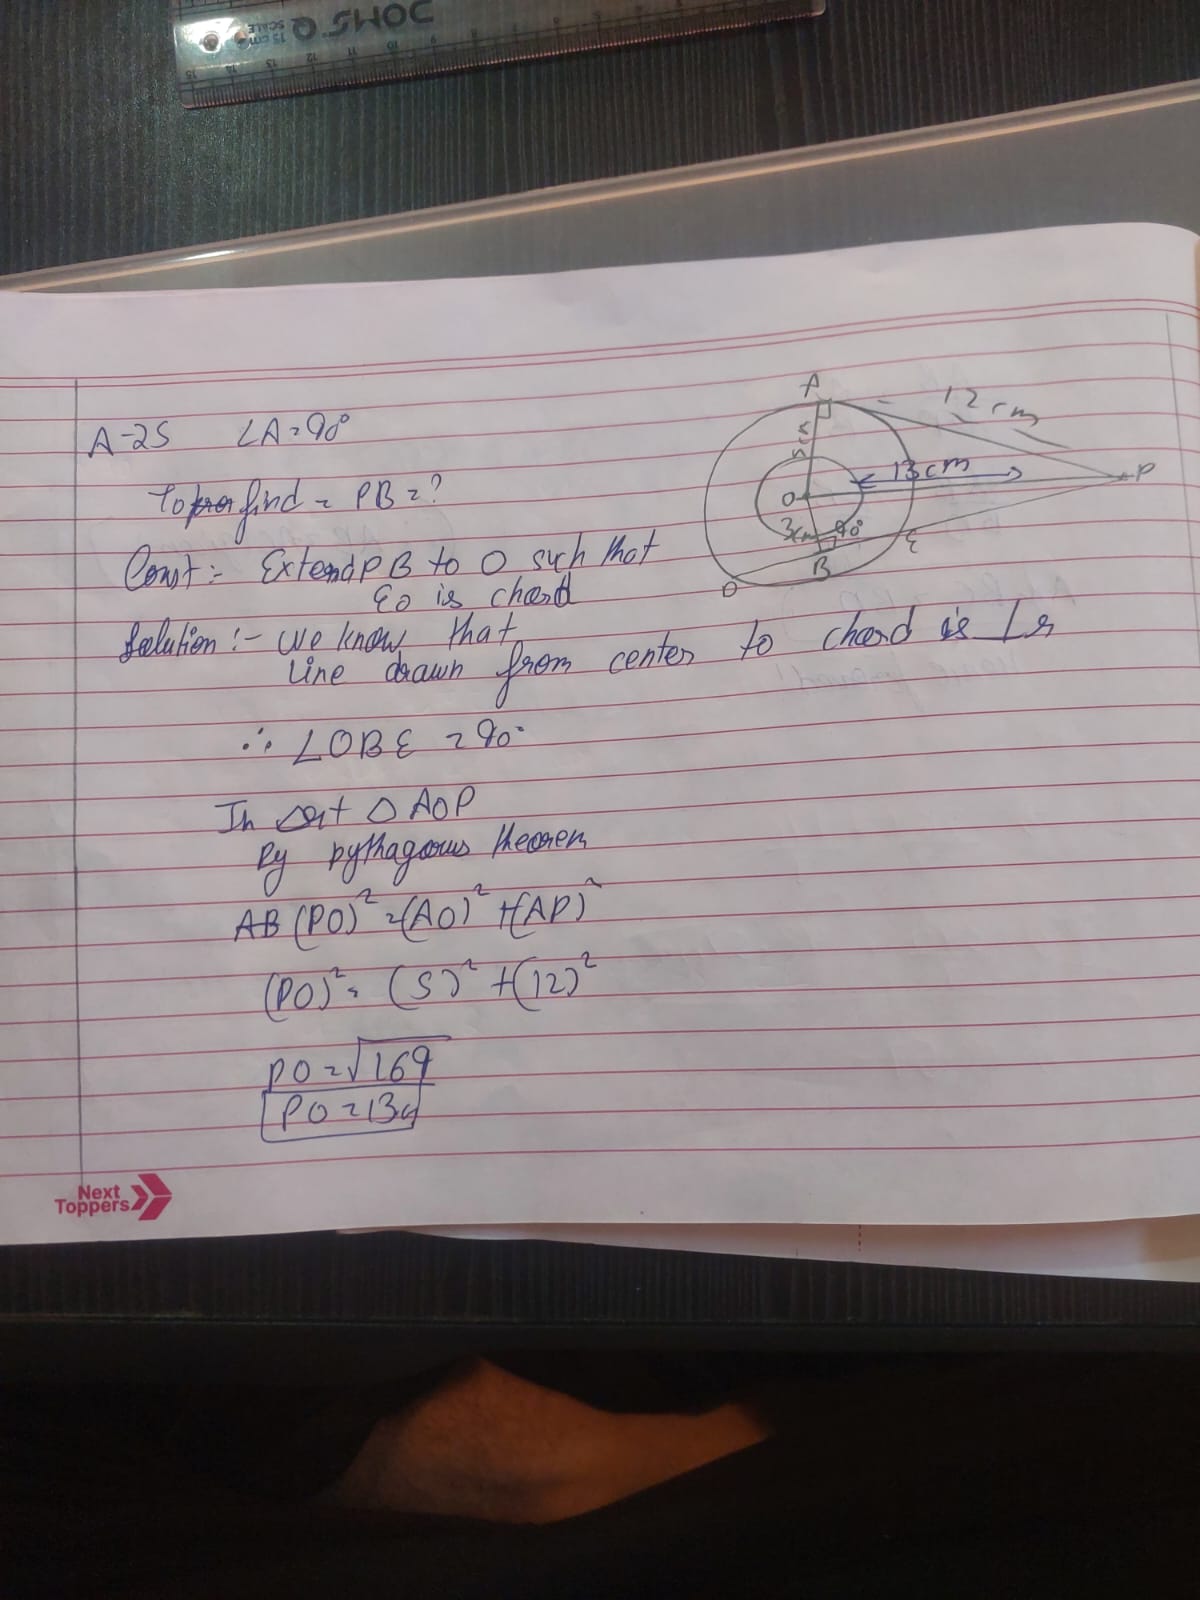 DOMS Q
SCALE
15 cm
15 14 13 12 11 10 9
A-25 ∠A=90°
To find = PB=?
Const:- Extend PB to O such that
EO is chord
Solution:- we know that
Line drawn from center to chord is ⊥r
∴ ∠OBE = 90°
In rt △ AOP
By pythagorus theorem
AB (PO)² = (AO)² + (AP)²
(PO)² = (5)² + (12)²
PO = √169
PO = 13c
A
12 cm
5cm
13cm
P
O
3cm 90°
E
B
D
Next
Toppers